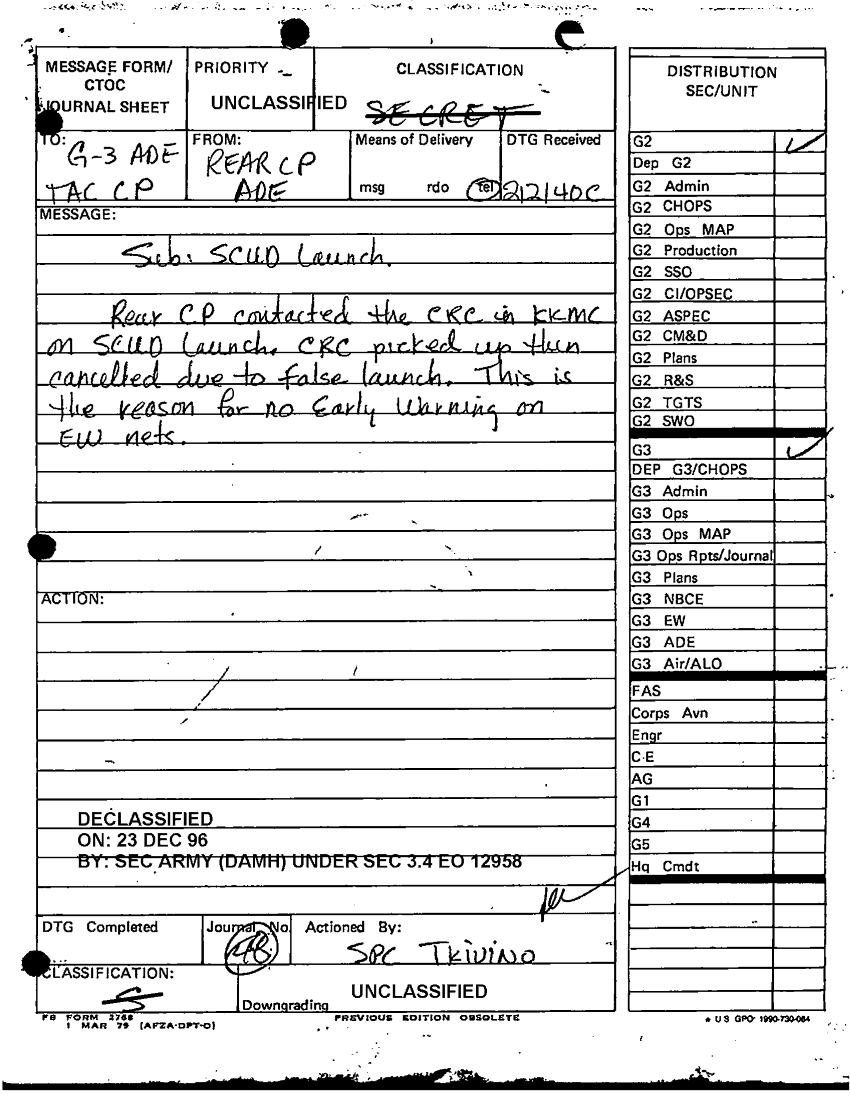 MESSAGE FORM/
CTOC
JOURNAL SHEET
PRIORITY
UNCLASSIFIED
CLASSIFICATION
SECRET
TO:
G-3 ADE
TAC CP
FROM:
REAR CP
ADE
Means of Delivery
msg rdo tel
DTG Received
212140C
MESSAGE:
Sub: SCUD Launch.
Rear CP contacted the CRC in KKMC
on SCUD Launch. CRC picked up then
cancelled due to false launch. This is
the reason for no Early Warning on
EW nets.
ACTION:
DECLASSIFIED
ON: 23 DEC 96
BY: SEC ARMY (DAMH) UNDER SEC 3.4 EO 12958
DTG Completed
Journal No.
Actioned By:
SPC
CLASSIFICATION:
S
Downgrading
UNCLASSIFIED
FB FORM 2768
1 MAR 79 (AFZA-DPT-O)
PREVIOUS EDITION OBSOLETE
DISTRIBUTION
SEC/UNIT
G2
Dep G2
G2 Admin
G2 CHOPS
G2 Ops MAP
G2 Production
G2 SSO
G2 CI/OPSEC
G2 ASPEC
G2 CM&D
G2 Plans
G2 R&S
G2 TGTS
G2 SWO
G3
DEP G3/CHOPS
G3 Admin
G3 Ops
G3 Ops MAP
G3 Ops Rpts/Journal
G3 Plans
G3 NBCE
G3 EW
G3 ADE
G3 Air/ALO
FAS
Corps Avn
Engr
C-E
AG
G1
G4
G5
Hq Cmdt
* U S GPO: 1990-730-084